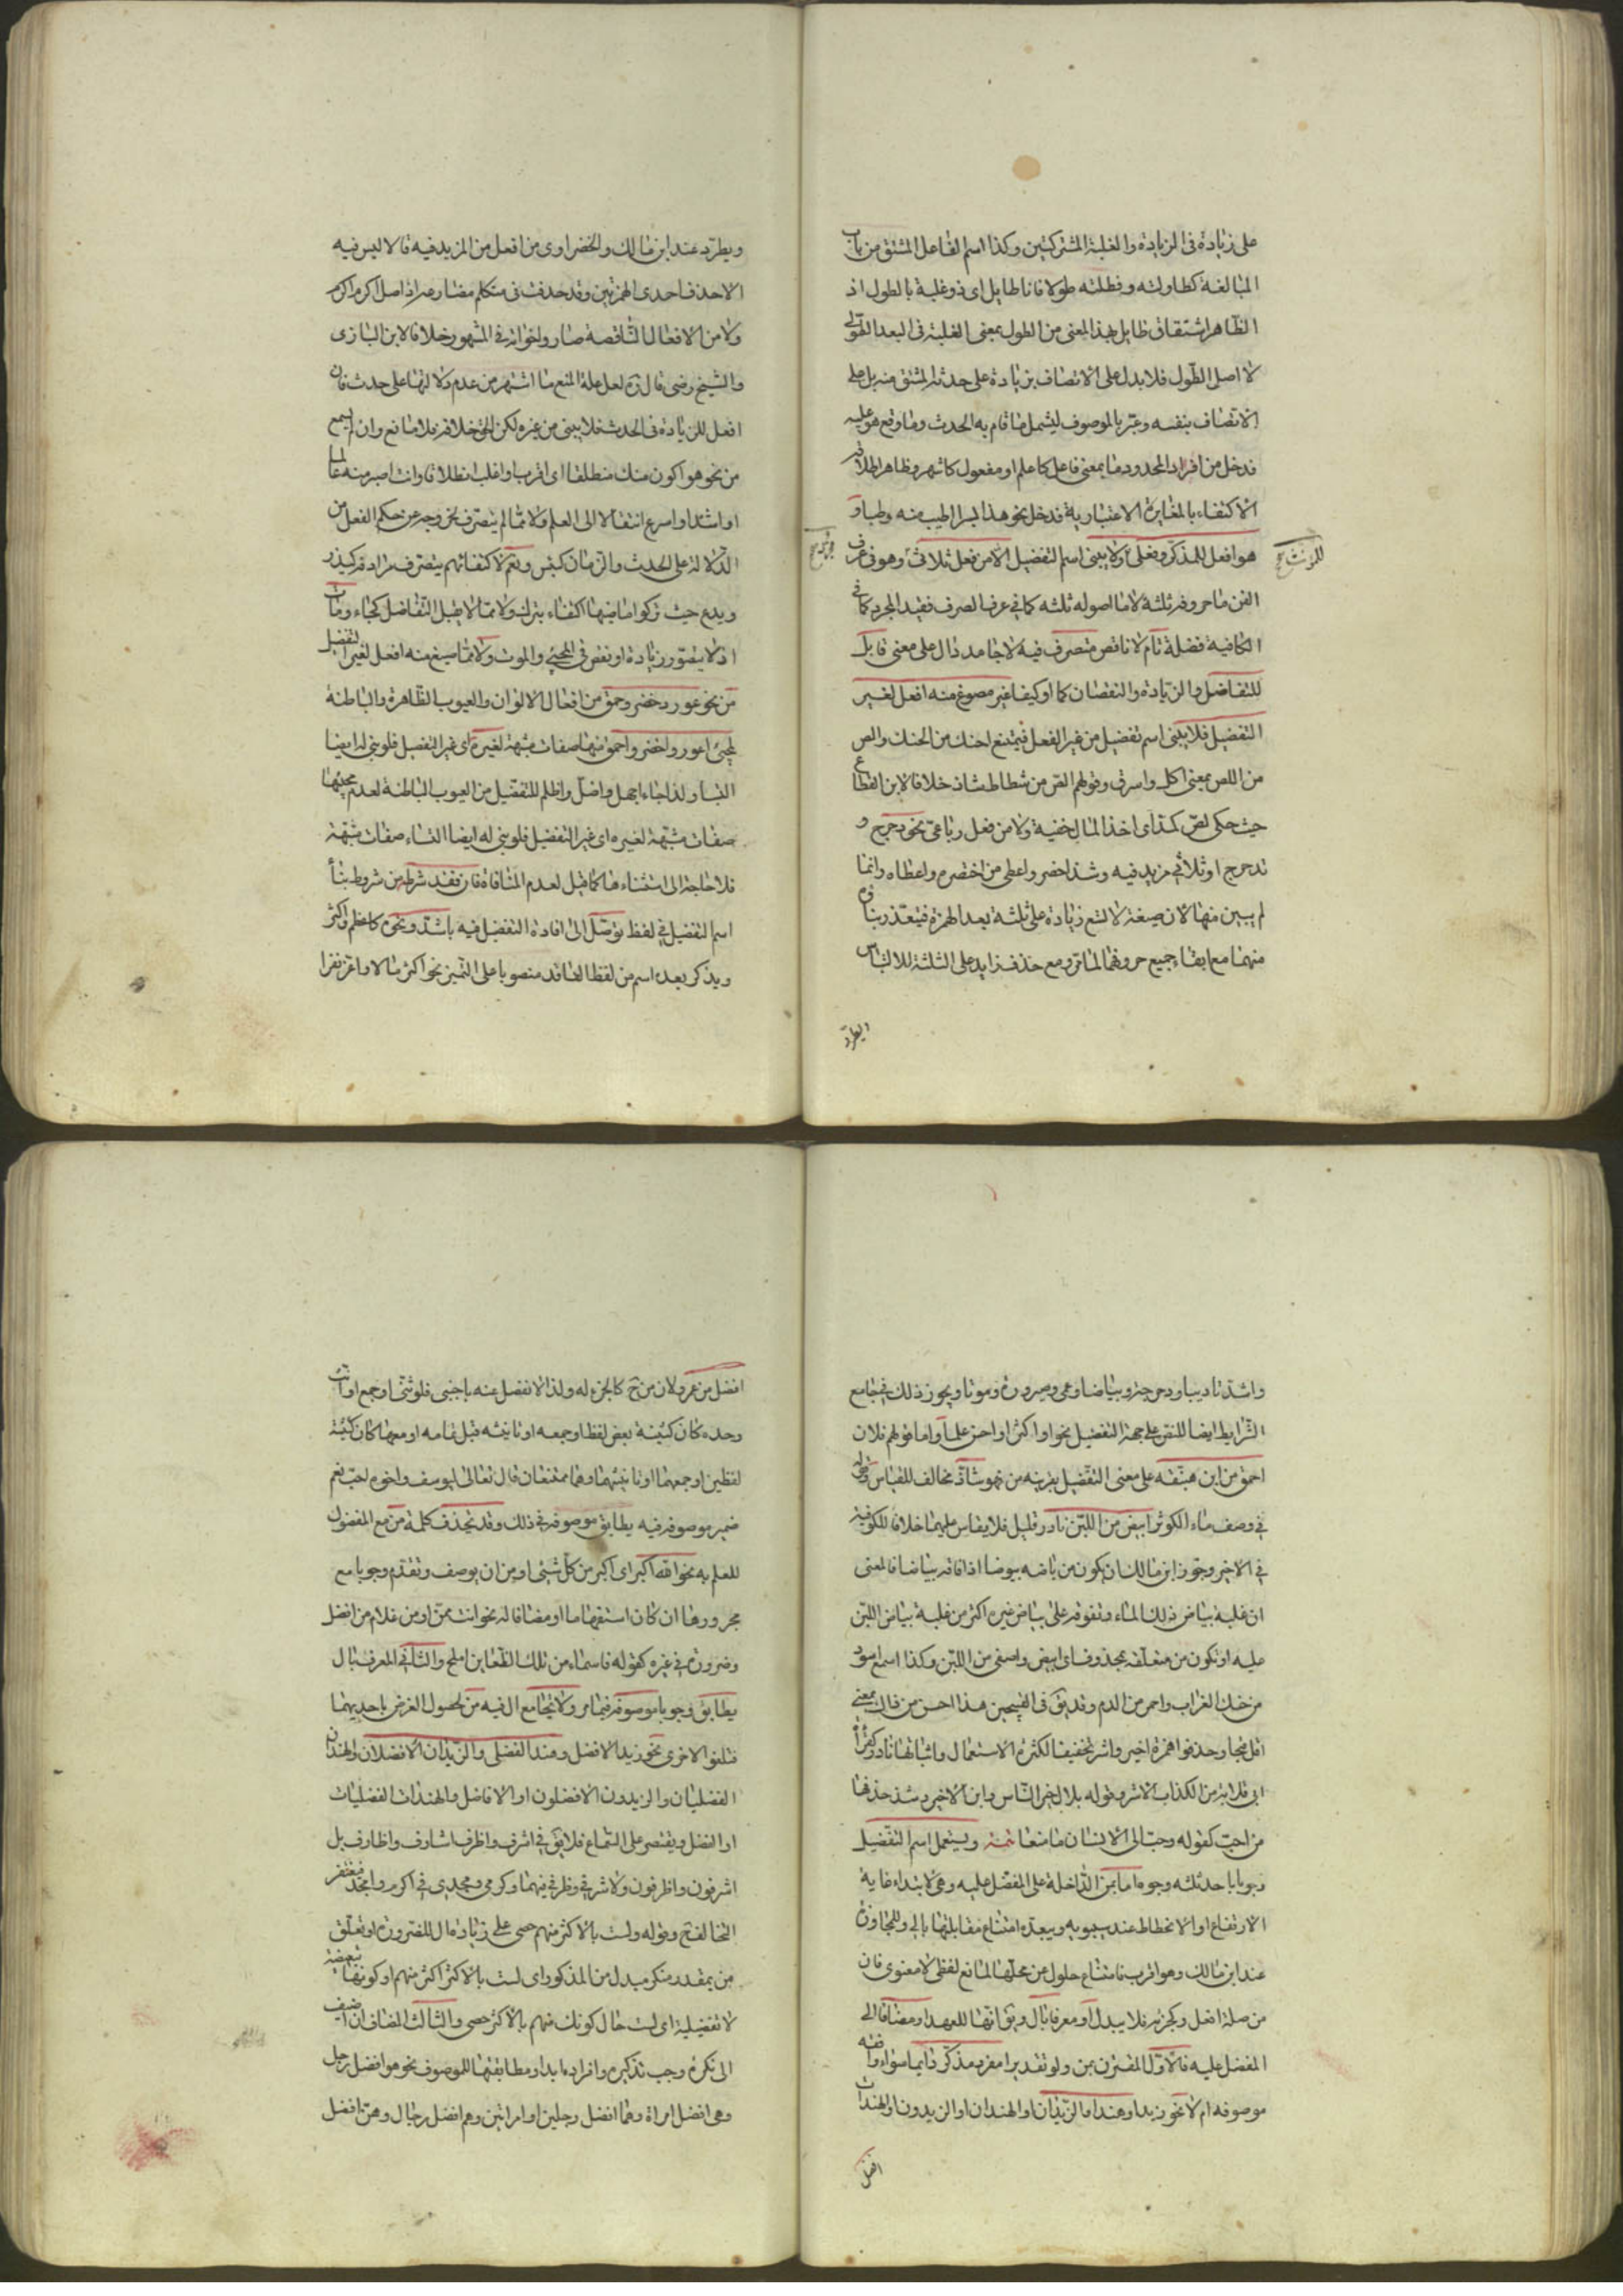 على زيادة فى الزيادة والغلبة المشتركتين وكذا اسم الفاعل المشتق من باب
المبالغة كطاولته وفطلته طولا فانا طايل اى ذو غلبة بالطول اذ
الظاهر اشتقاق طايل بهذا المعنى من الطول بمعنى الغلبة فى البعد الطولى
لا اصل الطول فلا يدل على الاتصاف بزيادة على حدثه المشتق منه بل على
الاتصاف بنفسه وعبّر بالموصوف ليشمل ما قام به الحدث وما وقع هو عليه
فدخل من افراد المحدود ما بمعنى فاعل كاعلم او مفعول كاشهر وظاهر اطلاقه
الاكتفاء بالمغايرة الاعتبارية فدخل نحو هذا بسرا اطيب منه رطبا و
هو افعل للمذكر وفعلى ولا يبنى اسم التفضيل الا من فعل ثلاثى وهو فى عرف
للمؤنث صح
الفن ما حروفه ثلثة لا ما اصوله ثلثه كما فى عرف الصرف فقيد المجرد كما فى
الكافية فضلة تام لا ناقص متصرف فيه لا جامد دال على معنى قابل
للتفاضل والزيادة والنقصان كما او كيفا غير مصوغ منه افعل لغير
التفضيل فلا يبنى اسم تفضيل من غير الفعل فيمتنع احنك من الحنك والص
من اللص بمعنى اكل واسرق وقولهم الص من شظاظ شاذ خلافا لابن القطاع
حيث حكى لصّ كمدّ اى اخذ المال خفية ولا من فعل رباعى نحو دحرج و
تدحرج او ثلاثى مزيد فيه وشذ اخصر واعطى من اختصره واعطاه وانما
لم يبين منها لان صيغة لا تسع زيادة على ثلثة بعد الهمزة فيتعذر بناؤه
منهما مع ابقاء جميع حروفهما لما مر ومع حذف زايد على الثلثة للالتباس
ويطرد
ويطرد عند ابن مالك والخضراوى من افعل من المزيد فيه قالا ليس فيه
الا حذف احدى الهمزتين وقد حذفت فى متكلم مضارعه اذ اصل اكرم اأكرم
ولا من الافعال الناقصة صار واخواته فى المشهور خلافا لابن انبازى
والشيخ رضى قال ره لعل علة المنع ما اشتهر من عدم دلالتها على حدث فان
افعل للزيادة فى الحدث فلا يبنى من غيره لكن الحق خلافه فلا مانع وان لم يسمع
من نحو هو اكون منك منطلقا اى اقرب واغلب انطلاقا وانت اصير منه عالما
او اشد او اسرع انتقالا الى العلم ولا مما لم يتصرف لخروجه عن حكم الفعل من
الدلالة على الحدث والزمان كبئس ونعم لاكتفائهم بتصرف مرادفه كيذر
ويدع حيث تركوا ماضيهما اكتفاء بترك ولا مما لا يقبل التفاضل كجاء ومات
اذ لا يتصور زيادة او نقص فى المجيئ والموت ولا مما صيغ منه افعل لغير التفضيل
من نحو عور وخضر وحمق من افعال الالوان والعيوب الظاهرة والباطنة
لمجئ اعور واخضر واحمق منها صفات مشبهة لغيره اى غير التفضيل فلو بنى له ايضا
التبس ولذا جاء اجهل واضل واظلم للتفضيل من العيوب الباطنة لعدم مجيئها
صفات مشبهة لغيره اى غير التفضيل فلو بنى له ايضا التباء صفات مشبهة
فلا حاجة الى استثناء ها كما قيل لعدم المنافاة فان فقد شرط من شروط بناء
اسم التفضيل فى لفظ توصل الى افادة التفضيل فيه باشد ونحوه كاعظم واكثر
ويذكر بعده اسم من لفظ الفاقد منصوبا على التميز نحو اكثر مالا واعز نفرا
واشد تاديبا ودحرجة وبياضا وعمى وصيرورة وموتا ويجوز ذلك فيما جامع
الشرايط ايضا للنص على جهة التفضيل نحو اواكثر او احسن علما واما قولهم فلان
احمق من ابن هبنقه على معنى التفضيل بقرينه من فهو شاذ مخالف للقياس وقوله
فى وصف ماء الكوثر ابيض من اللبن نادر قليل فلا يقاس عليهما خلافا للكوفية
فى الاخير وجوز ابن مالك ان يكون من باضه يبوضا اذا فاقه بياضا فالمعنى
ان غلبة بياض ذلك الماء وتفوقه على بياض غيره اكثر من غلبة بياض اللبن
عليه او تكون من متعلقه بمحذوف اى ابيض واصفى من اللبن وكذا اسمع اسود
من حنك الغراب واحمر من الدم وقد يق فى القبيحين هذا احسن من ذاك بمعنى
اقل قبحا وحذفوا همزة اخير واشر تخفيفا لكثرة الاستعمال واثباتها نادر كقراة
ابى قلابة من الكذاب الاشر وقوله بلال خير الناس وابن الاخير وشذ حذفها
من احب كقوله وحب الى الانسان ما منعا تمنه ويستعمل اسم التفضيل
وجوبا باحد ثلثه وجوه اما بمن الداخلة على المفضل عليه وهى لابتداء غاية
الارتفاع او الانحطاط عند سيبويه ويبعده امتناع مقابلتها بالى وللمجاوزة
عند ابن مالك وهو اقرب فامتناع حلول عن محلها المانع لفظى لا معنوى فان
من صلة افعل وكجزئه فلا يبدل او معرفا بال ويق انها للعهد او مضافا الى
المفضل عليه فالاول المقترن بمن ولو تقديرا مفرد مذكر دايما سواء وافقه
موصوفه ام لا نحو زيد او هند او الزيدان او الهندان او الزيدون او الهندات
افضل
افضل من عمرو لان من ح كالجزء له ولذا لا تفصل عنه باجنبى فلو ثنى او جمع او انث
وحده كان كتثنية بعض لفظ او جمعه او تانيثه قبل تمامه او معها كان كتثنية
لفظين او جمعهما او تانيثهما وهما ممتنعان قال تعالى ليوسف واخوه احب نعم
ضمير موصوفه فيه يطابق موصوفه فى ذلك وقد تحذف كلمة من مع المفضول
للعلم به نحو الله اكبر اى اكبر من كل شيئ او من ان يوصف وتقدم وجوبا مع
مجرورها ان كان استفهاما او مضافا له نحو انت ممن او من غلام من افضل
وضرورة فى غيره كقوله فاسماء من تلك الظعاين املح والثانى المعرف بال
يطابق وجوبا موصوفه فيما مر ولا تجامع ال فيه من لحصول الغرض باحديهما
فتلغو الاخرى نحو زيد الافضل وهند الفضلى والزيدان الافضلان والهندان
الفضليان والزيدون الافضلون او الافاضل والهندات الفضليات
او الفضل ويقتصر على السماع فلا يق فى اشرف واظرف اشارف واظارف بل
اشرفون واظرفون ولا شرفى وظرفى فيهما وكرمى ومجدى فى اكرم وامجد فيغتفر
التخالف ح وقوله ولست بالاكثر منهم حصى على زيادة ال للضرورة او تعلق
من بمقدر منكر مبدل من المذكور اى لست بالاكثر اكثر منهم او كونها تبعيضية
لا تفضيلية اى لست حال كونك منهم بالاكثر حصى والثالث المضاف ان اضيف
الى نكرة وجب تذكيره وافراده ابدا ومطابقتها للموصوف نحو هو افضل رجل
وهى افضل امراة وهما افضل رجلين او امراتين وهم افضل رجال وهن افضل